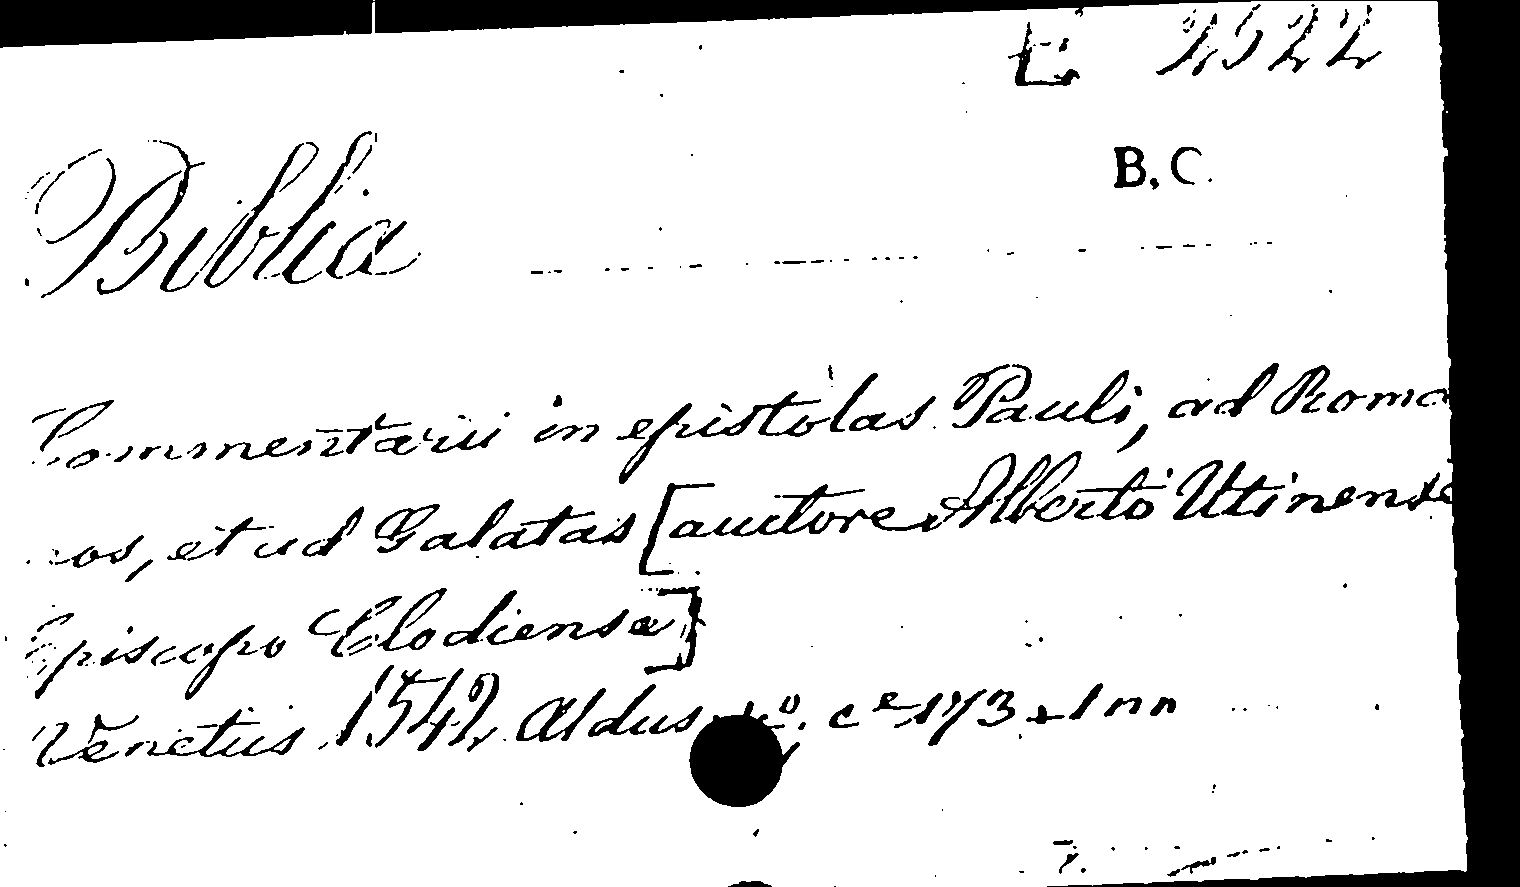 E 2522
B.C.
Biblia
Commentarii in epistolas Pauli, ad Roma
nos, et ad Galatas [auctore Alberto Utinense
Episcopo Clodiense]
Venetiis 1542 Aldus 4º, ce 173 + 1 nn